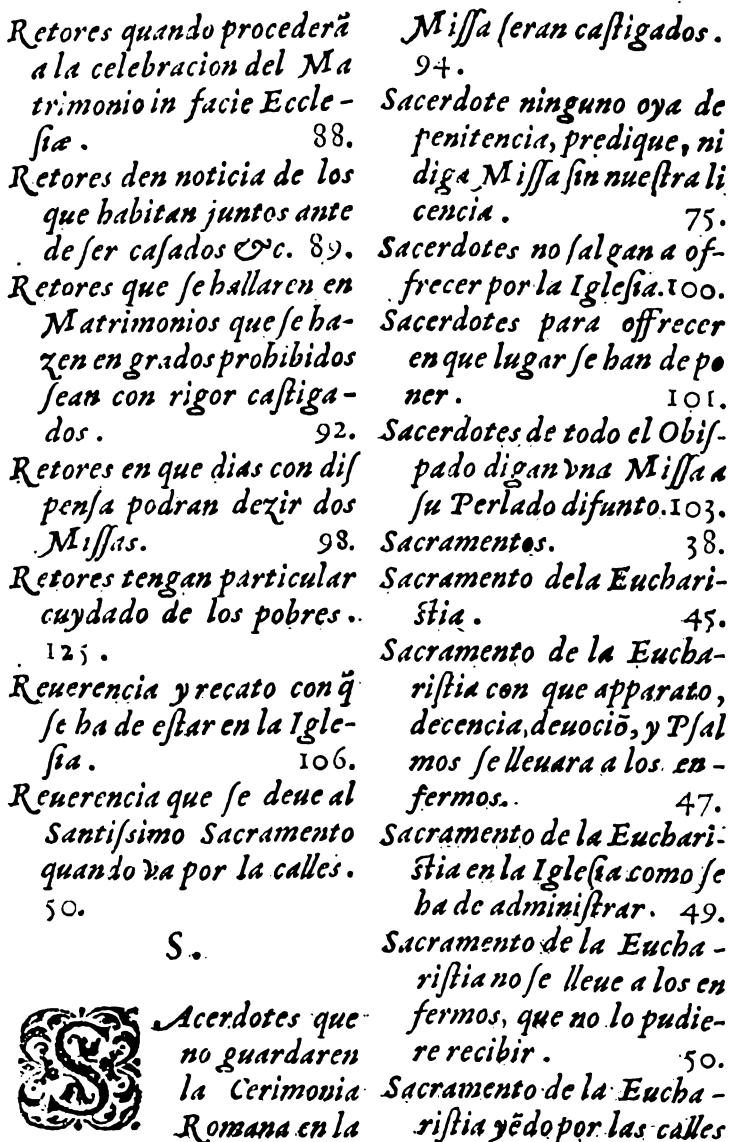 Retores quando procederā
a la celebracion del Ma
trimonio in facie Eccle-
ſiæ. 88.
Retores den noticia de los
que habitan juntos ante
de ſer caſados &c. 89.
Retores que ſe hallaren en
Matrimonios que ſe ha-
zen en grados prohibidos
ſean con rigor caſtiga-
dos. 92.
Retores en que dias con diſ
penſa podran dezir dos
Miſſas. 98.
Retores tengan particular
cuydado de los pobres.
125.
Reuerencia y recato con q̃
ſe ha de eſtar en la Igle-
ſia. 106.
Reuerencia que ſe deue al
Santiſsimo Sacramento
quando va por la calles.
50.
S.
SAcerdotes que
no guardaren
la Cerimonia
Romana en la
Miſſa ſeran caſtigados.
94.
Sacerdote ninguno oya de
penitencia, predique, ni
diga Miſſa ſin nueſtra li
cencia. 75.
Sacerdotes no ſalgan a of-
frecer por la Igleſia. 100.
Sacerdotes para offrecer
en que lugar ſe han de po
ner. 101.
Sacerdotes de todo el Obiſ-
pado digan vna Miſſa a
ſu Perlado difunto. 103.
Sacramentos. 38.
Sacramento dela Euchari-
ſtia. 45.
Sacramento de la Eucha-
riſtia con que apparato,
decencia, deuociō, y Pſal
mos ſe lleuara a los en-
fermos. 47.
Sacramento de la Euchari-
ſtia en la Igleſia como ſe
ha de adminiſtrar. 49.
Sacramento de la Eucha-
riſtia no ſe lleue a los en
fermos, que no lo pudie-
re recibir. 50.
Sacramento de la Eucha-
riſtia yēdo por las calles